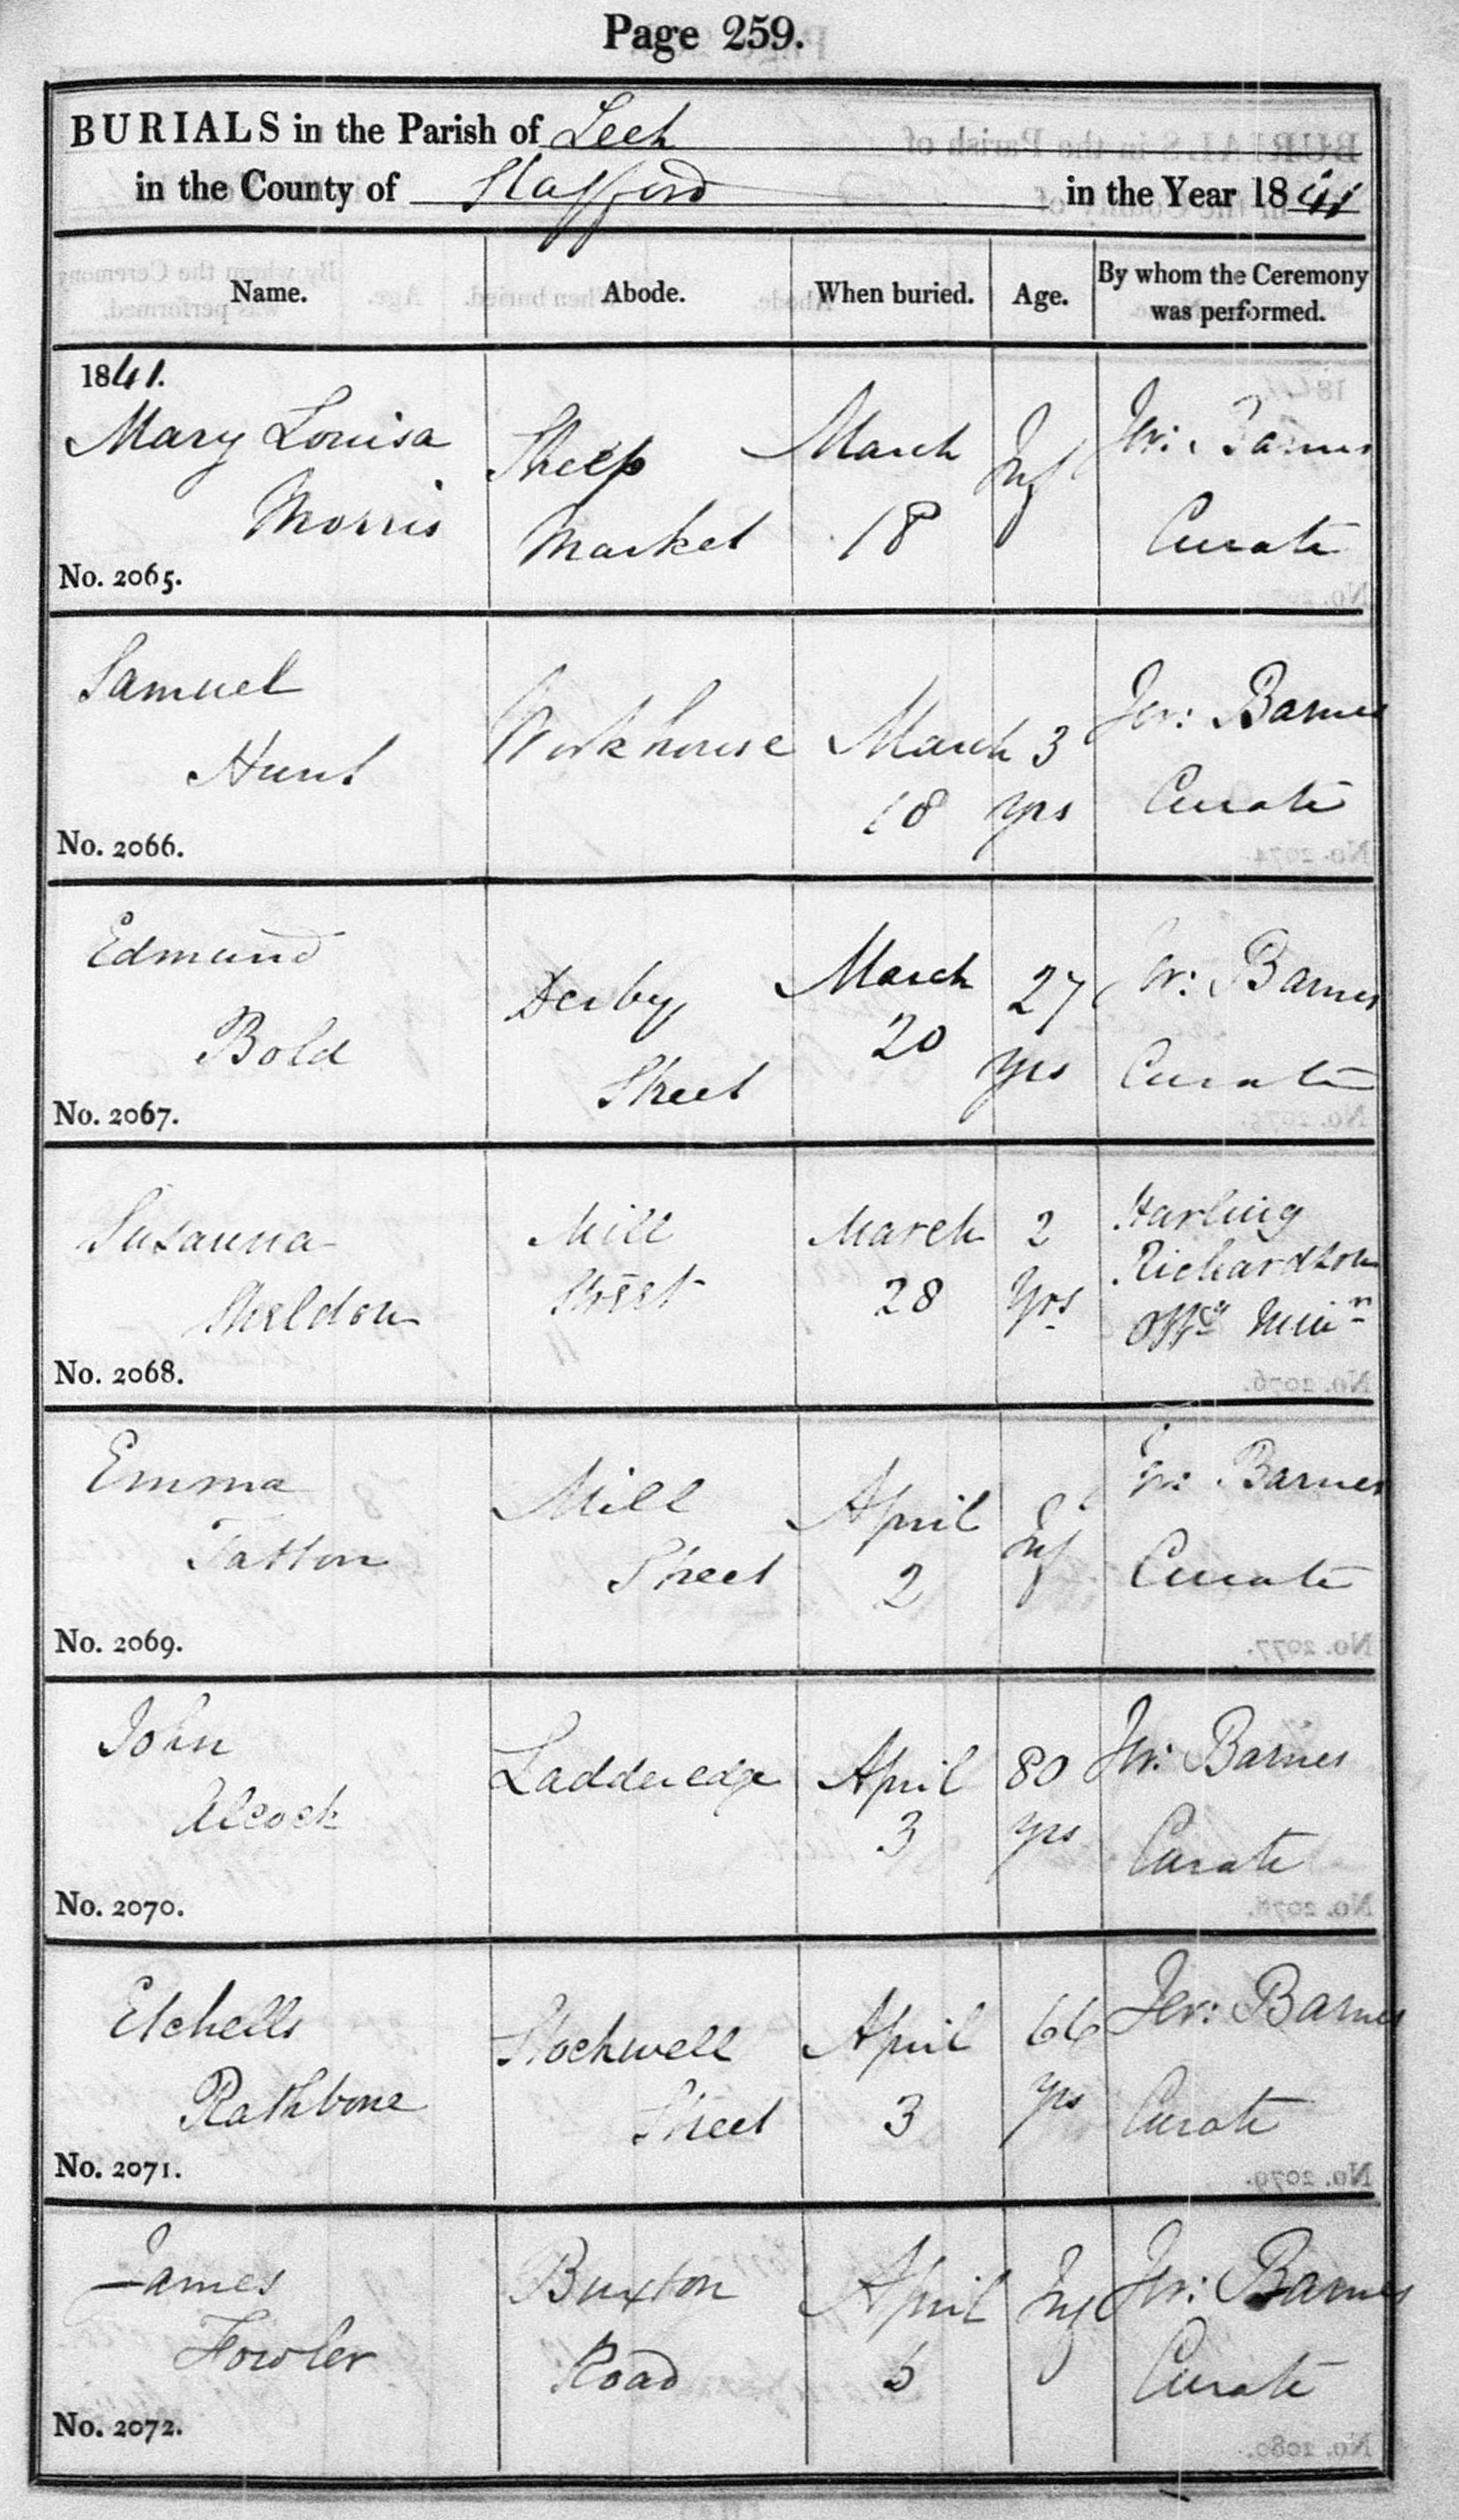 Page 259.
BURIALS in the Parish of Leek
in the County of Stafford in the Year 1841
Name. Abode. When buried. Age. By whom the Ceremony was performed.
1841.
Mary Louisa
Morris
No. 2065.
Sheep
Market
March
18
Inf
Jer: Barnes
Curate
Samuel
Hunt
No. 2066.
Workhouse
March
18
3
yrs
Jer: Barnes
Curate
Edmund
Bold
No. 2067.
Derby
Street
March
20
27
yrs
Jer: Barnes
Curate
Susanna
Sheldon
No. 2068.
Mill
Street
March
28
2
Yrs
Harling
Richardson
Offg Minr
Emma
Tatton
No. 2069.
Mill
Street
April
2
Inf
Jer: Barnes
Curate
John
Alcock
No. 2070.
Ladderedge
April
3
80
yrs
Jer: Barnes
Curate
Etchells
Rathbone
No. 2071.
Stockwell
Street
April
3
66
yrs
Jer: Barnes
Curate
James
Fowler
No. 2072.
Buxton
Road
April
Inf
Jer: Barnes
Curate